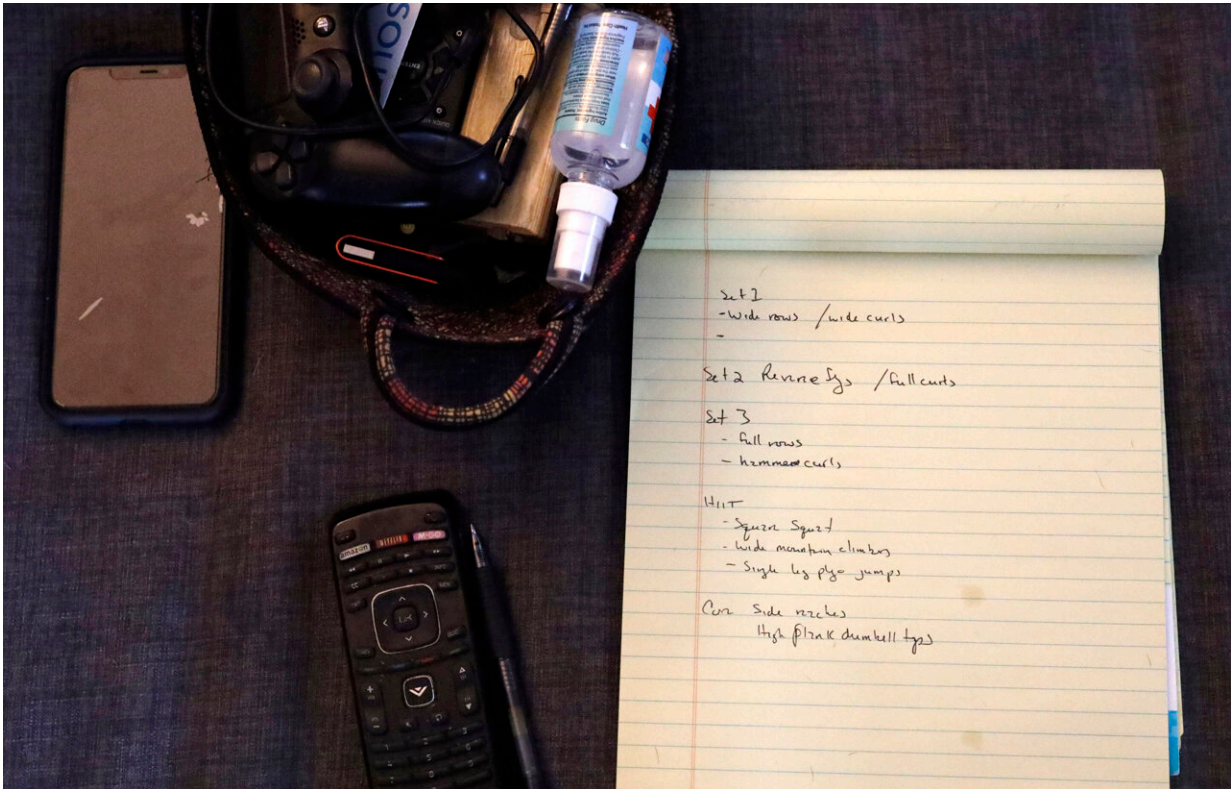 SOU
ENTER
Drug Facts
Set 1
- Wide rows / wide curls
-
Set 2 Reverse flys / full curls
Set 3
- full rows
- hammer curls
HIIT
- Square Squat
- Wide mountain climbers
- Single leg plyo jumps
Core Side reaches
High plank dumbell taps
amazon